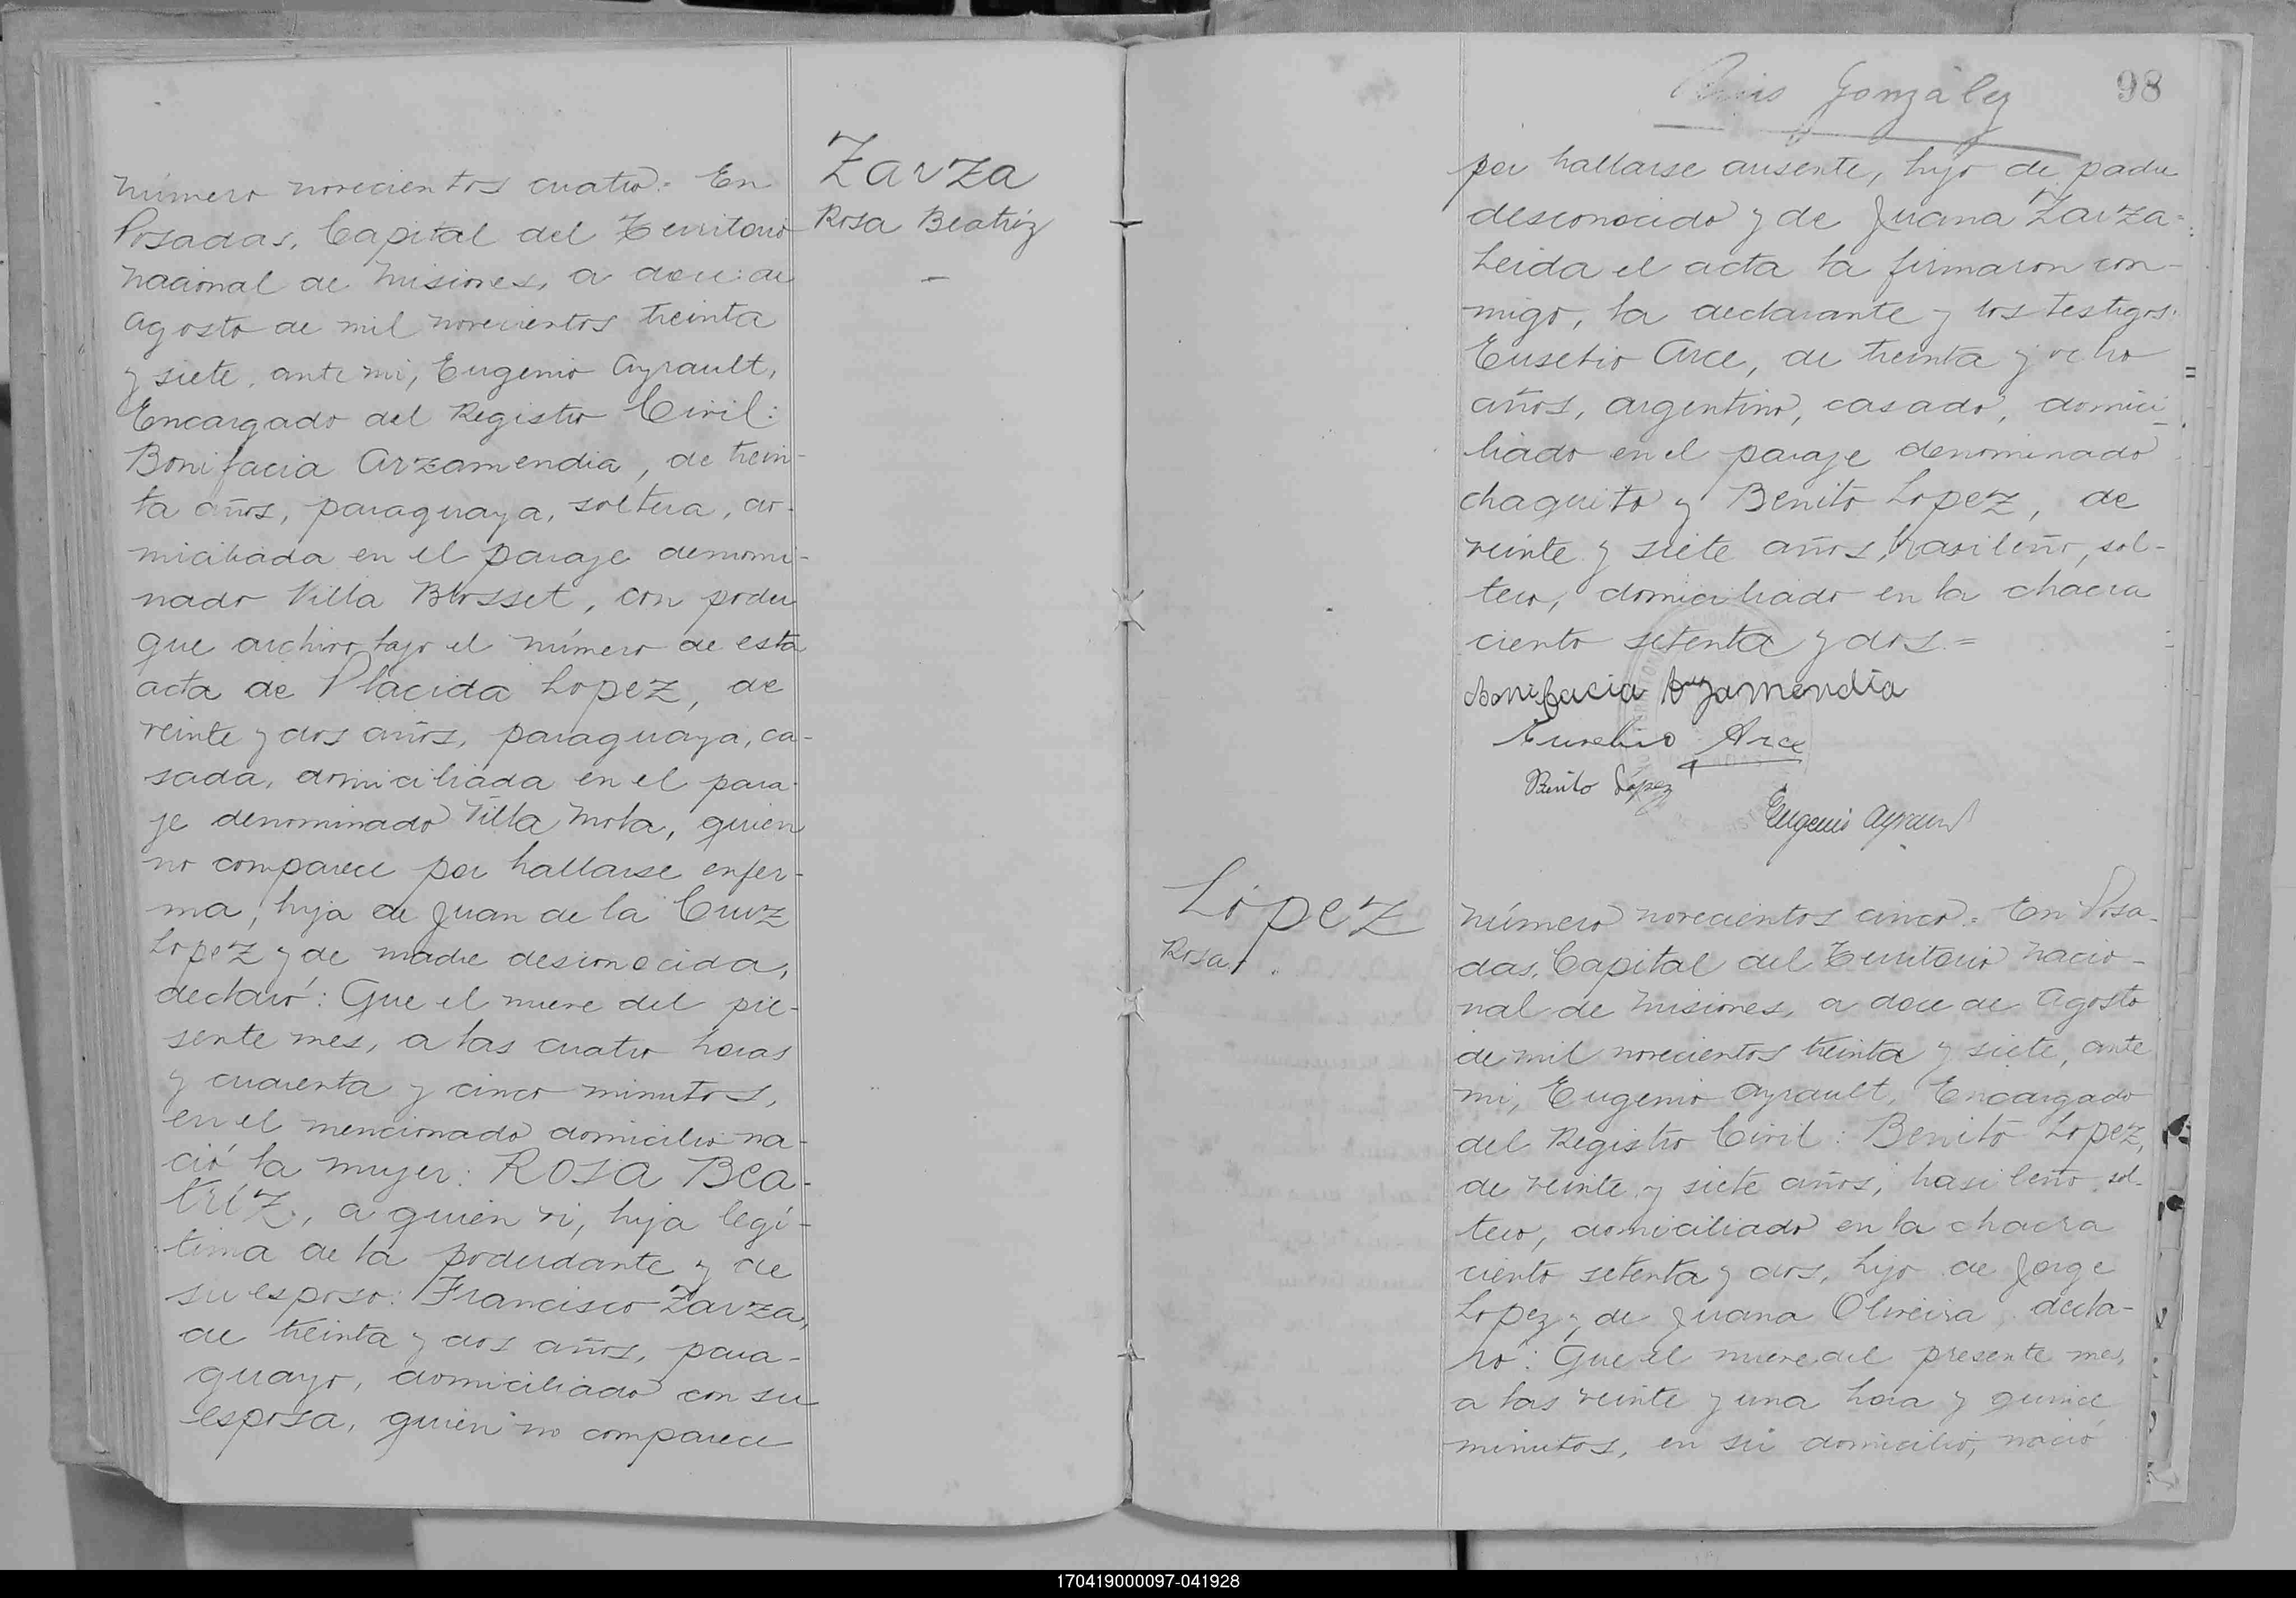 Zarza
Rosa Beatríz
Número novecientos cuatro= En
Posadas, Capital del Territorio
Nacional de Misiones, a doce de
Agosto de mil novecientos treinta
y siete, ante mi, Eugenio Ayrault,
Encargado del Registro Civil:
Bonifacia Arzamendia, de trein-
ta años, paraguaya, soltera, do-
miciliada en el paraje denomi-
nado Villa Blosset, con poder
que archivo bajo el número de esta
acta de Plácida Lopez, de
veinte y dos años, paraguaya, ca-
sada, domiciliada en el para-
je denominado Villa Mota, quien
no comparece por hallarse enfer-
ma, hija de Juan de la Cruz
Lopez y de madre desconocida,
declaró: Que el nueve del pre-
sente mes, a las cuatro horas
y cuarenta y cinco minutos,
en el mencionado domicilio na-
ció la mujer: ROSA BEA-
TRÍZ, a quien ví, hija legí-
tima de la poderdante y de
su esposo: Francisco Zarza,
de treinta y dos años, para-
guayo, domiciliado con su
esposa, quien no comparece
González
98
por hallarse ausente, hijo de padre
desconocido y de Juana Zarza=
Leida el acta la firmaron con-
migo, la declarante y los testigos:
Eusebio Arce, de treinta y ocho
años, argentino, casado, domici-
liado en el paraje denominado
chaquito y Benito Lopez, de
veinte y siete años, brasileño, sol-
tero, domiciliado en la chacra
ciento setenta y dos=
Bonifacia Arzamendia
Eusebio Arce
Benito López
Eugenio Ayrault
López
Rosa
Número novecientos cinco= En Posa-
das, Capital del Territorio Nacio-
nal de Misiones, a doce de Agosto
de mil novecientos treinta y siete, ante
mi, Eugenio Ayrault, Encargado
del Registro Civil: Benito Lopez,
de veinte y siete años, brasileño, sol-
tero, domiciliado en la chacra
ciento setenta y dos, hijo de Jorge
Lopez y de Juana Oliveira, decla-
ró: Que el nueve del presente mes,
a las veinte y una hora y quince
minutos, en su domicilio, nació
170419000097-041928